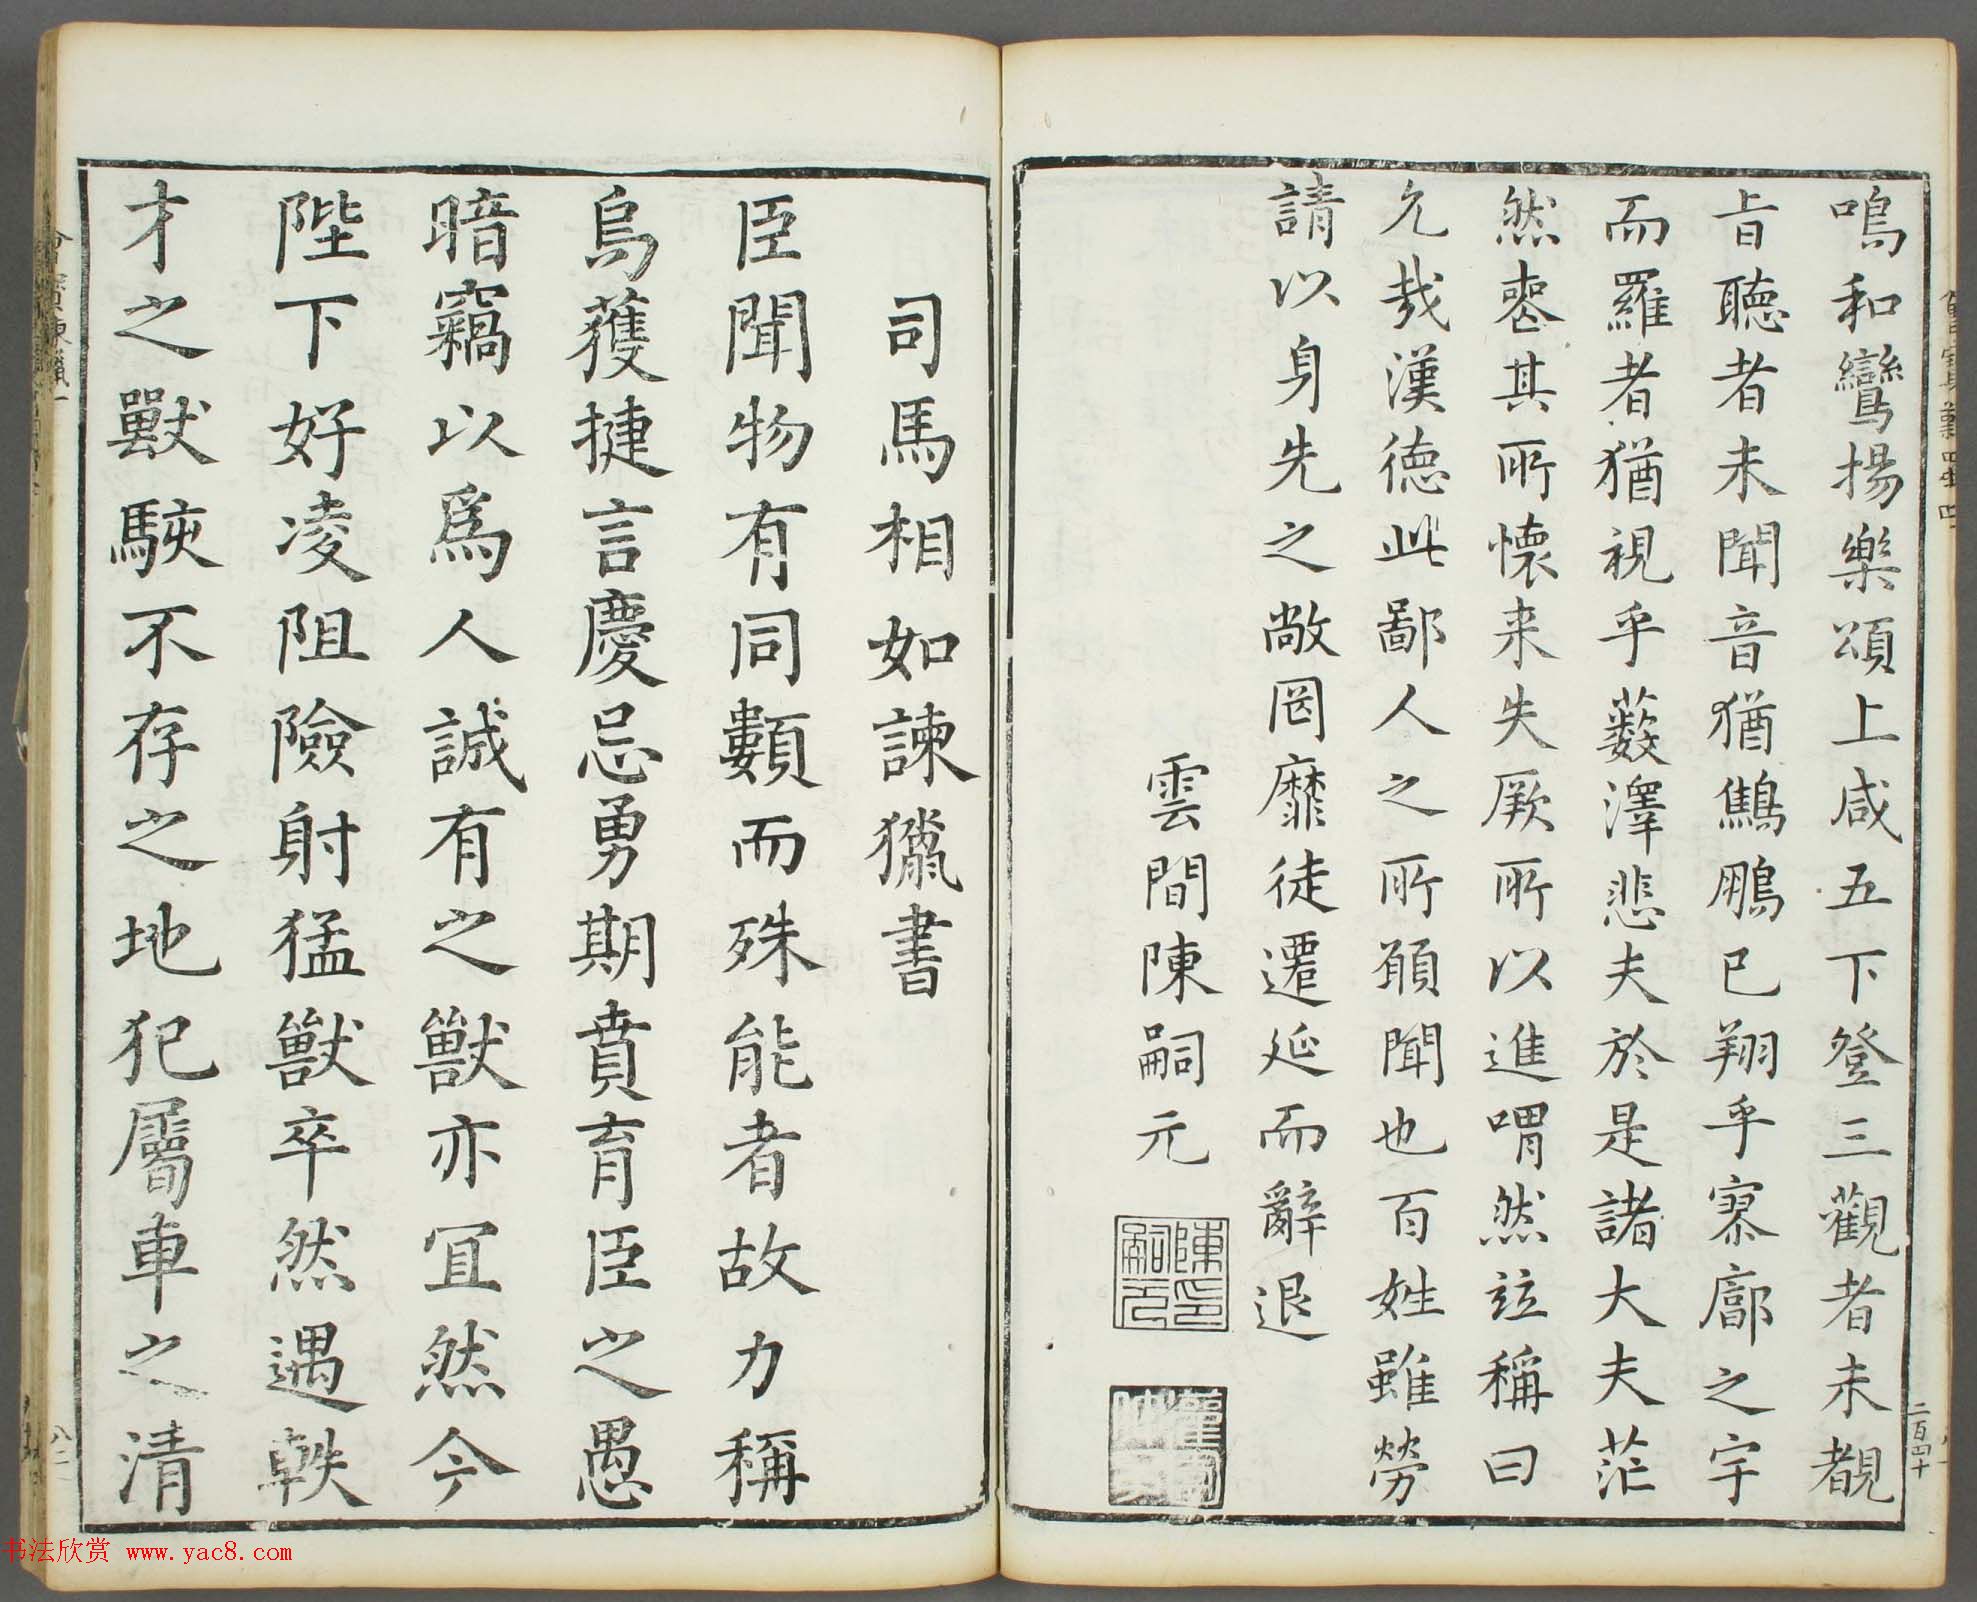 鳴和鸞揚樂頌上咸五下登三觀者未覩
旨聽者未聞音猶鷦鵬已翔乎寥廓之宇
而羅者猶視乎藪澤悲夫於是諸大夫茫
然喪其所懷来失厥所以進喟然竝稱曰
允哉漢德此鄙人之所願聞也百姓雖勞
請以身先之敞罔靡徒遷延而辭退
雲間陳嗣元
陳嗣元印
二百四十
司馬相如諫獵書
臣聞物有同類而殊能者故力稱
烏獲捷言慶忌勇期賁育臣之愚
暗竊以爲人誠有之獸亦冝然今
陛下好凌阻險射猛獸卒然遇軼
才之獸駭不存之地犯屬車之清
书法欣赏 www.yac8.com